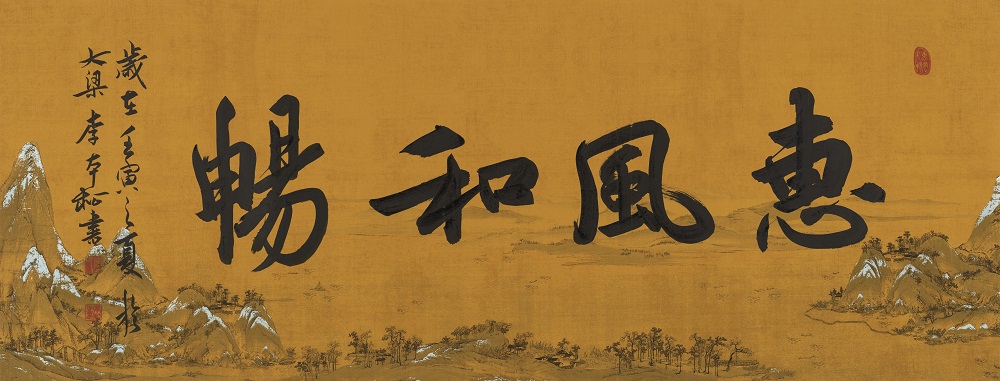 惠風和暢
歲在壬寅之夏於
大梁李本和書